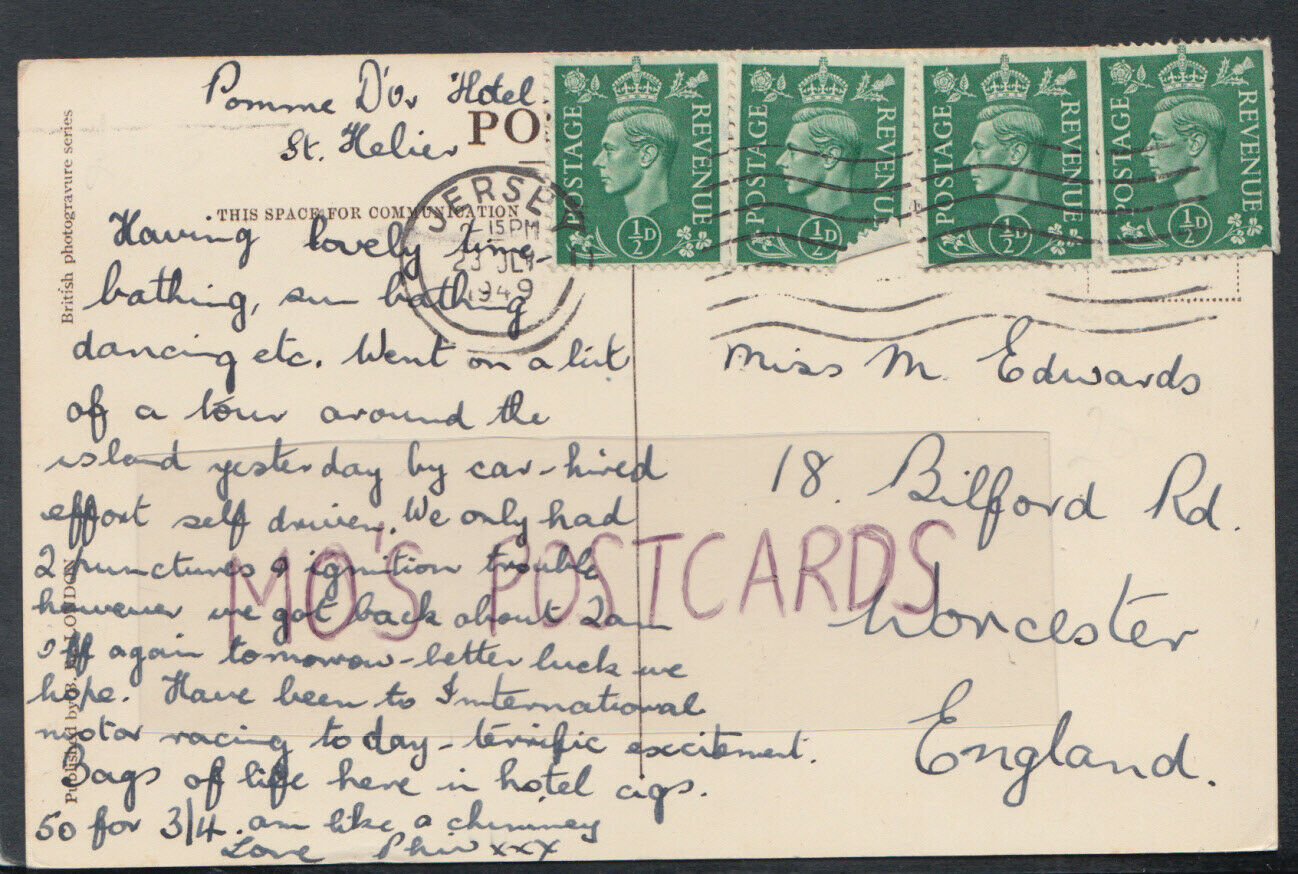 Pomme D'Or Hotel
St. Helier
PO
THIS SPACE FOR COMMUNICATION
JERSEY
2-15PM
JLY
1949
POSTAGE REVENUE ½D
POSTAGE REVENUE ½D
POSTAGE REVENUE ½D
POSTAGE REVENUE ½D
British photogravure series
Having lovely time -
bathing, sun bathing
dancing etc. Went on a bit
of a tour around the
island yesterday by car - hired
effort self driven. We only had
2 punctures & ignition trouble
however we got back about 2am
off again tomorrow - better luck we
hope. Have been to International
motor racing today - terrific excitement.
Bags of life here in hotel cigs.
50 for 3/4. am like a chimney
Love Phil xxx
Published by LONDON
Miss M. Edwards
18. Bilford Rd.
Worcester
England.
MO'S POSTCARDS